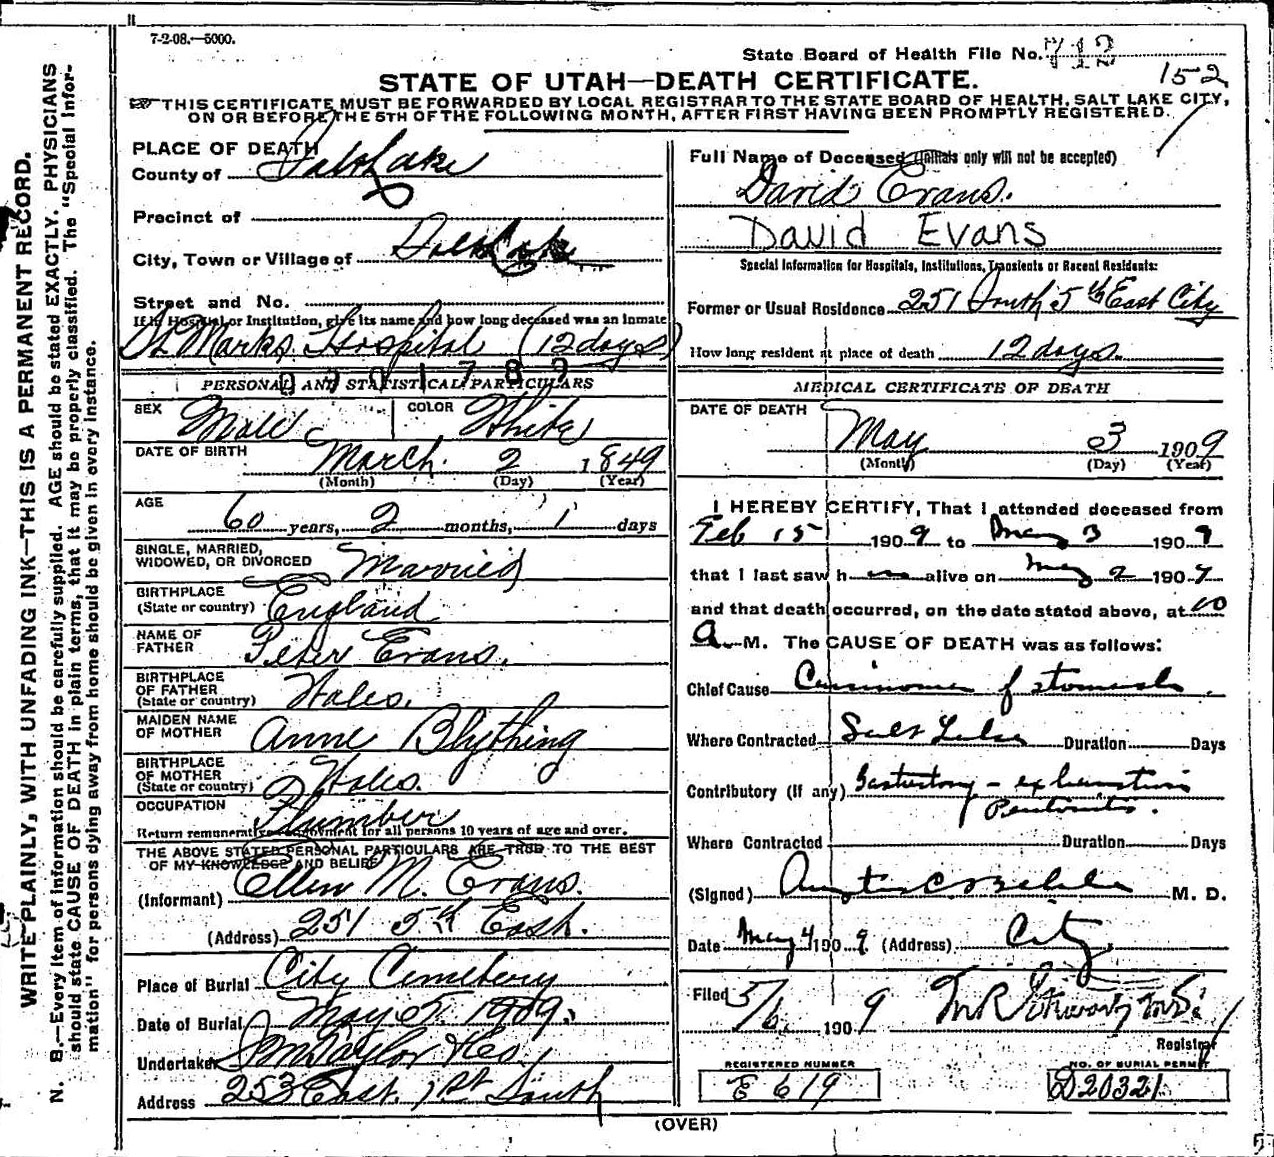 7-2-08.—5000.
State Board of Health File No.
152
STATE OF UTAH—DEATH CERTIFICATE.
THIS CERTIFICATE MUST BE FORWARDED BY LOCAL REGISTRAR TO THE STATE BOARD OF HEALTH, SALT LAKE CITY,
ON OR BEFORE THE 5TH OF THE FOLLOWING MONTH, AFTER FIRST HAVING BEEN PROMPTLY REGISTERED.
WRITE PLAINLY, WITH UNFADING INK—THIS IS A PERMANENT RECORD.
N. B.—Every item of information should be carefully supplied. AGE should be stated EXACTLY. PHYSICIANS
should state CAUSE OF DEATH in plain terms, that it may be properly classified. The "Special Infor-
mation" for persons dying away from home should be given in every instance.
PLACE OF DEATH
County of Salt Lake
Precinct of
City, Town or Village of Salt Lake
Street and No.
If in Hospital or Institution, give its name and how long deceased was an inmate
St Marks Hospital (12 days)
PERSONAL AND STATISTICAL PARTICULARS
SEX Male COLOR White
DATE OF BIRTH March 2 1849
(Month) (Day) (Year)
AGE 60 years, 2 months, 1 days
SINGLE, MARRIED,
WIDOWED, OR DIVORCED Married
BIRTHPLACE
(State or country) England
NAME OF
FATHER Peter Evans.
BIRTHPLACE
OF FATHER
(State or country) Wales.
MAIDEN NAME
OF MOTHER Anne Blything
BIRTHPLACE
OF MOTHER
(State or country) Wales.
OCCUPATION Plumber
Return remunerative employment for all persons 10 years of age and over.
THE ABOVE STATED PERSONAL PARTICULARS ARE TRUE TO THE BEST
OF MY KNOWLEDGE AND BELIEF
(Informant) Ellen M. Evans.
(Address) 251 5th East.
Place of Burial City Cemetery
Date of Burial May 5. 1909.
Undertaker S M Taylor & Co,
Address 253 East 1st South
Full Name of Deceased (Initials only will not be accepted)
David Evans.
David Evans
Special Information for Hospitals, Institutions, Transients or Recent Residents:
Former or Usual Residence 251 South 5th East City
How long resident at place of death 12 days.
MEDICAL CERTIFICATE OF DEATH
DATE OF DEATH
May 3 1909
(Month) (Day) (Year)
I HEREBY CERTIFY, That I attended deceased from
Feb 15 1909 to May 3 1909
that I last saw h im alive on May 2 1909
and that death occurred, on the date stated above, at 10
A M. The CAUSE OF DEATH was as follows:
Chief Cause Carcinoma of stomach.
Where Contracted Salt Lake Duration Days
Contributory (If any) exhaustion
Peritonitis.
Where Contracted Duration Days
(Signed) M. D.
Date May 4 1909 (Address) City
Filed 5/6. 1909
Registrar
REGISTERED NUMBER
E 619
NO. OF BURIAL PERMIT
D20321
(OVER)